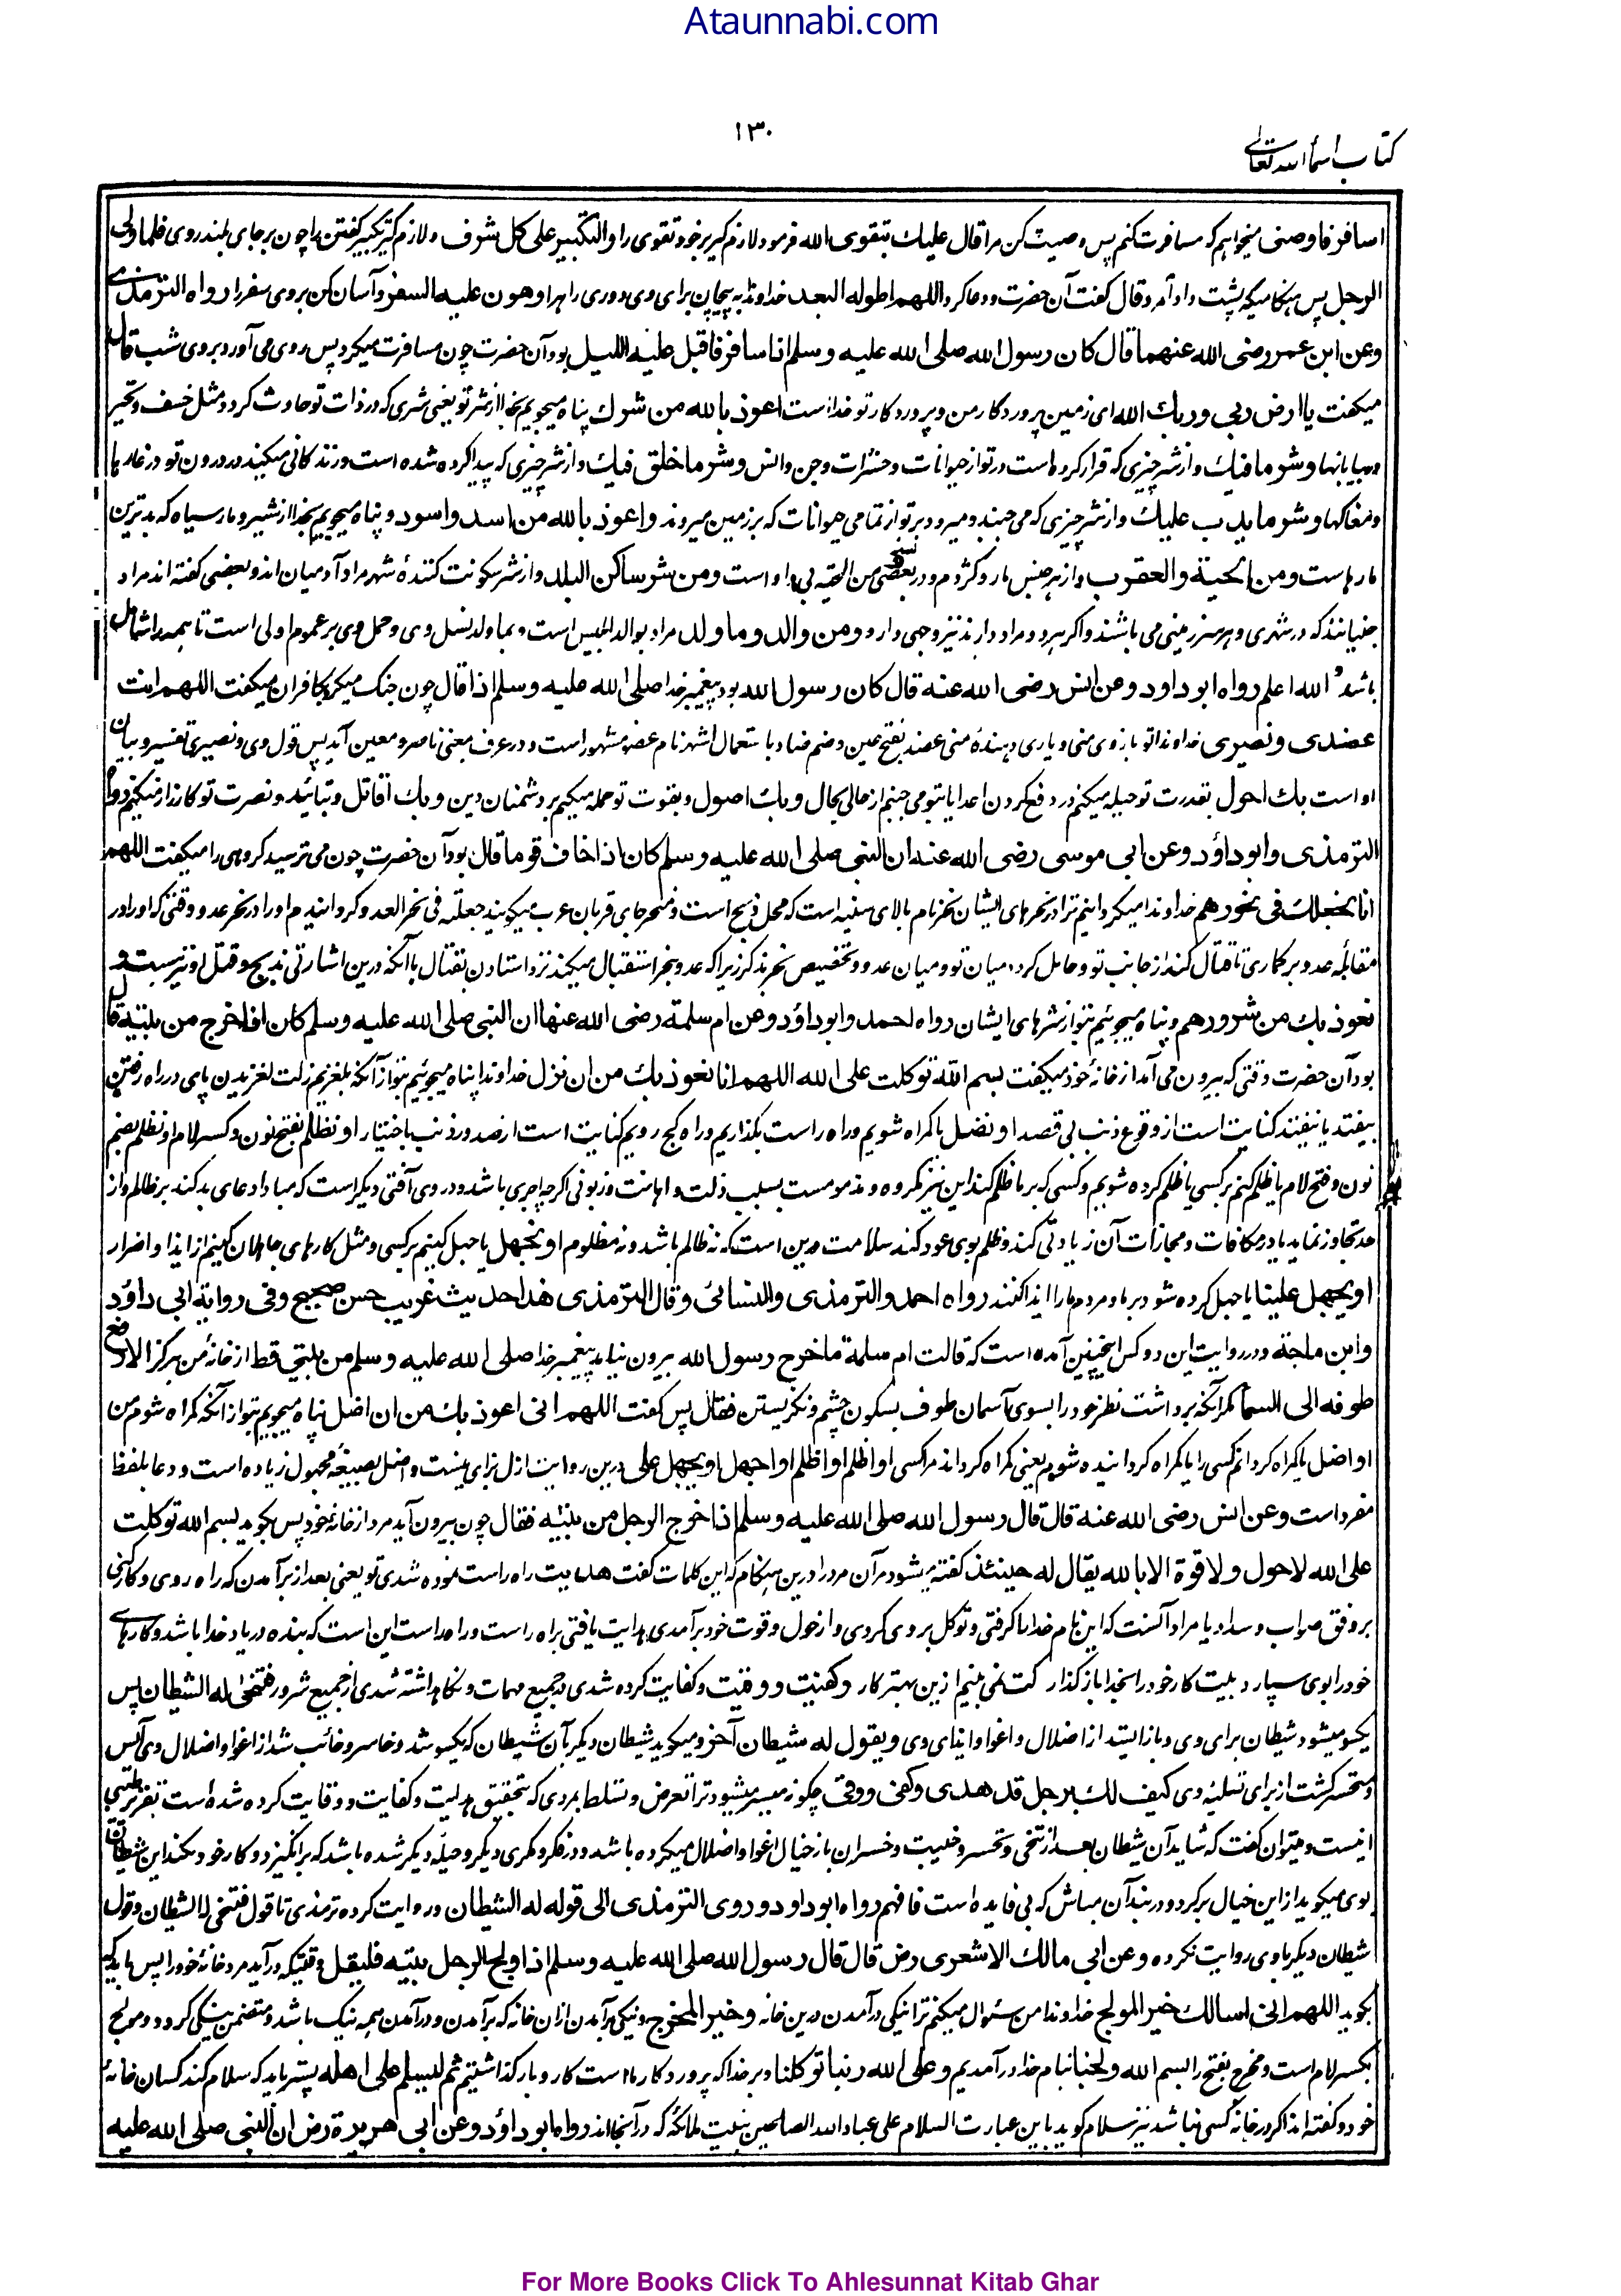 Ataunnabi.com
١٣٠
كتاب اسماء الله تعالى
اسافر فاوصنى میخواهم که مسافرت کنم پس وصیت کن مرا قال عليك بتقوى الله فرمود لازم گیر بر خود تقوی را والتكبير على كل شرف و لازم گیر تکبیر گفتن را چون بر جای بلند روی فلما ولى
الرجل پس هنگامیکه پشت داد آمرد قال گفت آن حضرت و دعا کرد اللهم اطوله البعد خداوندا به پیچان برای وی دوری راه را وهون عليه السفر و آسان کن بروی سفر را رواه الترمذى
وعن ابن عمر رضى الله عنهما قال كان رسول الله صلى الله عليه وسلم اذا سافر فاقبل عليه الليل بود آن حضرت چون مسافرت میکرد پس روی می آورد بروی شب قال
میگفت يا ارض ربى وربك الله ای زمین پروردگار من و پروردگار تو خداست اعوذ بالله من شرك پناه میجویم بخدا از شر تو یعنی شری که در ذات تو حادث گردد مثل خسف و تحیر
در بیابانها وشر ما فيك و از شر چیزی که قرار کرده است در تو از حیوانات و حشرات و جن و انس وشر ما خلق فيك و از شر چیزی که پیدا کرده شده است و زندگانی میکنند در درون تو در غارها
و مغاکها وشر ما يدب عليك و از شر چیزی که می جنبد و میرود بر تو از تمامی حیوانات که بر زمین میروند واعوذ بالله من اسد واسود و پناه میجویم بخدا از شیر و مار سیاه که بدترین
مارهاست ومن الحية والعقرب و از هر جنس مار و کژدم و در بعضی نسخ من الحیة بی واو است ومن شر ساكن البلد و از شر سکونت کنندهٔ شهر مراد آدمیان اند و بعضی گفته اند مراد
جنیانند که در شهری و هر سرزمینی می باشند و اگر هر دو مراد دارند نیز وجهی دارد ومن والد وما ولد مراد بوالد ابلیس است و بما ولد نسل وی و حمل وی بر عموم اولی است تا همه را شامل
باشد والله اعلم رواه ابو داود وعن انس رضى الله عنه قال كان رسول الله بود پیغمبر خدا صلى الله عليه وسلم اذا قال چون جنگ میکرد با کافران میگفت اللهم انت
عضدى ونصيرى خداوندا تو بازوی منی و یاری دهندهٔ منی عضد بفتح عین و ضم ضاد باستعمال اشهر نام عضو مشهور است و در عرف معنی ناصر و معین آید پس قول وی و نصیری تفسیر و بیان
او است بك احول بقدرت تو حیله میکنم در دفع کردن اعدا یا بتو می جنبم از حالی بحال وبك اصول و بقوت تو حمله میکنم بر دشمنان دین وبك اقاتل و بتائید و نصرت تو کارزار میکنم رواه
الترمذى وابوداؤد وعن ابى موسى رضى الله عنه ان النبى صلى الله عليه وسلم كان اذا خاف قوما قال بود آن حضرت چون می ترسید گروهی را میگفت اللهم
انا نجعلك فى نحورهم خداوندا میگردانیم ترا در نحرهای ایشان نحر نام بالای سینه است که محل ذبح است و منحر جای قربان عرب میگویند جعلته فی نحر العدو گردانیدم او را در نحر عدو وقتی که او را در
مقابله عدو برگماری تا قتال کند از جانب تو و حایل گردد میان تو و میان عدو و تخصیص نحر بذکر زیرا که عدو بنحر استقبال میکند نزد استادن بقتال با آنکه درین اشارتی بذبح و قتل او نیز هست و
نعوذ بك من شرورهم و پناه میجوئیم بتو از شرهای ایشان رواه احمد وابوداؤد وعن ام سلمة رضى الله عنها ان النبى صلى الله عليه وسلم كان اذا خرج من بيته قال
بود آن حضرت وقتی که بیرون می آمد از خانهٔ خود میگفت بسم الله توكلت على الله اللهم انا نعوذ بك من ان نزل خداوندا پناه میجوئیم بتو از آنکه بلغزیم زلت لغزیدن پای در راه رفتن
بیفتد یا نیفتد کنایت است از وقوع ذنب بی قصد او نضل یا گمراه شویم و راه راست بگذاریم و راه کج رویم کنایت است از صدور ذنب باختیار او نظلم بفتح نون و کسر لام او نظلم بضم
نون و فتح لام یا ظلم کنیم بر کسی یا ظلم کرده شویم و کسی که بر ما ظلم کند این نیز مکروه و مذموم است بسبب ذلت و اهانت و زبونی اگرچه اجری باشد و در وی آفتی دیگر است که مبادا دعای بد کند بر ظالم و از
حد تجاوز نماید یا در مکافات و مجازات آن زیادتی کند و ظلم بوی عود کند سلامت درین است که نه ظالم باشد و نه مظلوم او نجهل یا جهل کنیم بر کسی و مثل کارهای جاهلان کنیم از ایذا و اضرار
او يجهل علينا یا جهل کرده شود بر ما و مردم ما را ایذا کنند رواه احمد والترمذى والنسائى وقال الترمذى هذا حديث غريب حسن صحيح وفى رواية ابى داؤد
وابن ماجة و در روایت این دو کس اینچنین آمده است که قالت ام سلمة ما خرج رسول الله بیرون نیامد پیغمبر خدا صلى الله عليه وسلم من بيتى قط از خانهٔ من هرگز الا رفع
طرفه الى السماء مگر آنکه برداشت نظر خود را بسوی آسمان طرف بسکون چشم و نگریستن فقال پس گفت اللهم انى اعوذ بك من ان اضل پناه میجویم بتو از آنکه گمراه شوم من
او اضل یا گمراه گردانم کسی را یا گمراه گردانیده شوم یعنی گمراه گرداند مرا کسی او اظلم او اظلم او اجهل او يجهل على درین روایت ازل نزای نیست و اضل بصیغهٔ مجهول زیاده است و دعا بلفظ
مفرد است وعن انس رضى الله عنه قال قال رسول الله صلى الله عليه وسلم اذا خرج الرجل من بيته فقال چون بیرون آید مرد از خانه خود پس بگوید بسم الله توكلت
على الله لا حول ولا قوة الا بالله يقال له حينئذ گفته میشود مر آن مرد را درین هنگام که این کلمات گفت هديت راه راست نموده شدی تو یعنی بعد از برآمدن که راه روی و کار کنی
بر وفق صواب و سداد یا مراد آنست که این نام خدا را گرفتی و توکل بر وی کردی و از حول و قوت خود برآمدی هدایت یافتی براه راست و راه راست این است که بنده در یاد خدا باشد و کارهای
خود را بوی سپارد بیت کار خود را بخدا باز گذار کت نمی بینم ازین بهتر کار وكفيت ووقيت و کفایت کرده شدی در جمیع مهمات و نگاه داشته شدی از جمیع شرور فتنحى له الشيطان پس
یکسو میشود شیطان برای وی و باز ایستد از اضلال و اغوا و ایذای وی ويقول له شيطان آخر و میگوید شیطان دیگر بآن شیطان که یکسو شد و خاسر و خائب شد از اغوا و اضلال وی آیس
و متحسر گشت از برای تسلیهٔ وی كيف لك برجل قد هدى وكفى ووقى چگونه میسر میشود ترا تعرض و تسلط بمردی که بتحقیق هدایت و کفایت و وقایت کرده شده است تقریر طیبی
اینست و میتوان گفت که شاید آن شیطان بعد از تنحی و تحسر و خیبت و خسران باز خیال اغوا و اضلال میکرده باشد و در فکر و مکری دیگر و حیلهٔ دیگر شده باشد که برانگیزد و کار خود بکند این شیطان
بوی میگوید از این خیال برگرد و در بند آن مباش که بی فایده است فافهم رواه ابو داود وروى الترمذى الى قوله له الشيطان و روایت کرده ترمذی تا قول فتنحی له الشیطان و قول
شیطان دیگر با وی روایت نکرده وعن ابى مالك الاشعرى رض قال قال رسول الله صلى الله عليه وسلم اذا ولج الرجل بيته فليقل وقتیکه درآید مرد خانهٔ خود را پس باید که
بگوید اللهم انى اسالك خير المولج خداوندا من سئوال میکنم ترا نیکی درآمدن درین خانه وخير المخرج و نیکی برآمدن ازان خانه که برآمدن و درآمدن همه نیک باشد و متضمن نیکی گردد و مولج
بکسر لام است و مخرج بفتح را بسم الله ولجنا بنام خدا درآمدیم وعلى الله ربنا توكلنا و بر خدا که پروردگار ماست کار و بار گذاشتیم ثم ليسلم على اهله پستر باید که سلام کند کسان خانهٔ
خود و گفته اند اگر در خانه کسی نباشد نیز سلام گوید باین عبارت السلام علی عباد الله الصالحین بنیت ملائکه که در آنجا اند رواه ابوداؤد وعن ابى هريرة رض ان النبى صلى الله عليه
For More Books Click To Ahlesunnat Kitab Ghar